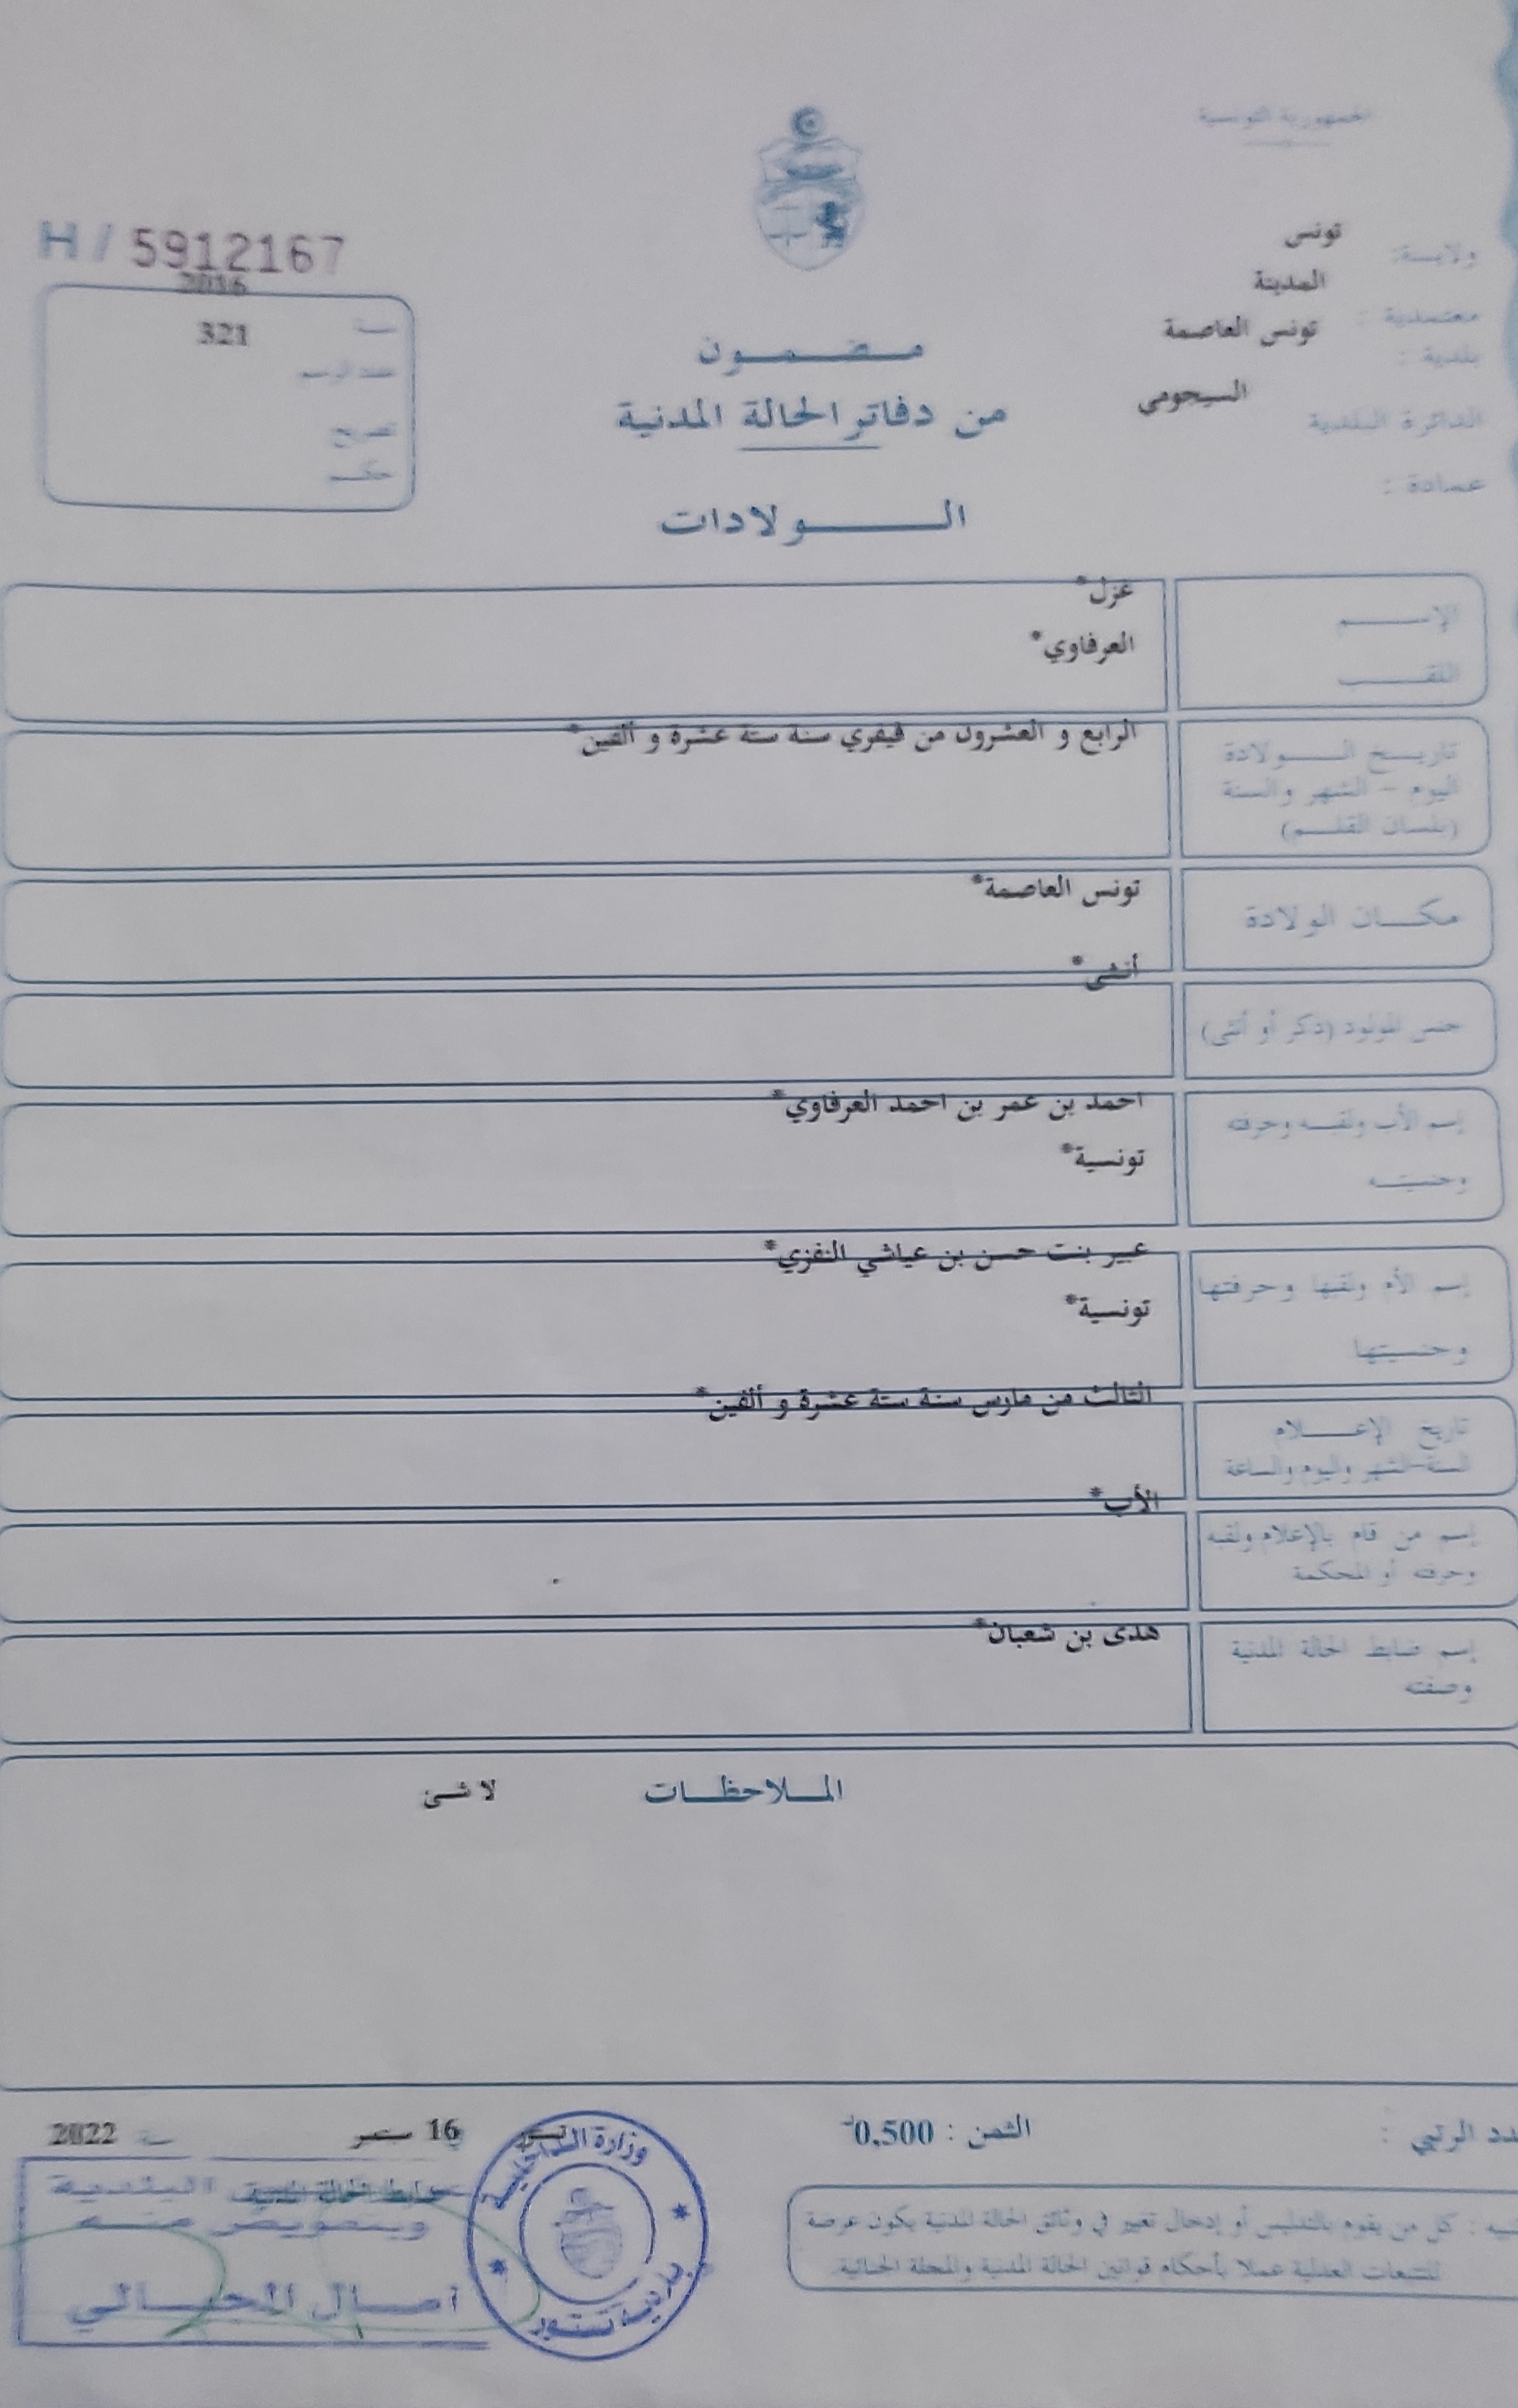 الجمهورية التونسية
H / 5912167
ولايـــة: تونس
معتمدية : المدينة
بلدية : تونس العاصمة
الدائرة البلدية السيجومي
عمادة :
سنة 2016
عدد الرسم 321
تصريح
حكم
مضمون
من دفاتر الحالة المدنية
الولادات
الإسم عزل*
اللقب العرفاوي*
تاريخ الولادة الرابع و العشرون من فيفري سنة ستة عشرة و ألفين*
اليوم - الشهر والسنة
(بلسان القلم)
مكان الولادة تونس العاصمة*
جنس المولود (ذكر أو أنثى) أنثى*
إسم الأب ولقبه وحرفته احمد بن عمر بن احمد العرفاوي*
وجنسيته تونسية*
إسم الأم ولقبها وحرفتها عبير بنت حسن بن عياشي النفزي*
وجنسيتها تونسية*
تاريخ الإعلام الثالث من مارس سنة ستة عشرة و ألفين*
السنة-الشهر واليوم والساعة
إسم من قام بالإعلام ولقبه الأب*
وحرفته أو المحكمة
إسم ضابط الحالة المدنية هدى بن شعبان*
وصفته
الملاحظات لا شئ
عدد الرتبي : الثمن : 0,500د
16 سبتمبر سنة 2022
تنبيه : كل من يقوم بالتدليس أو إدخال تغيير في وثائق الحالة المدنية يكون عرضة
للتتبعات العدلية عملا بأحكام قوانين الحالة المدنية والمجلة الجنائية.
ضابط الحالة المدنية
وبتفويض منه
وزارة الداخلية
بلدية تستور